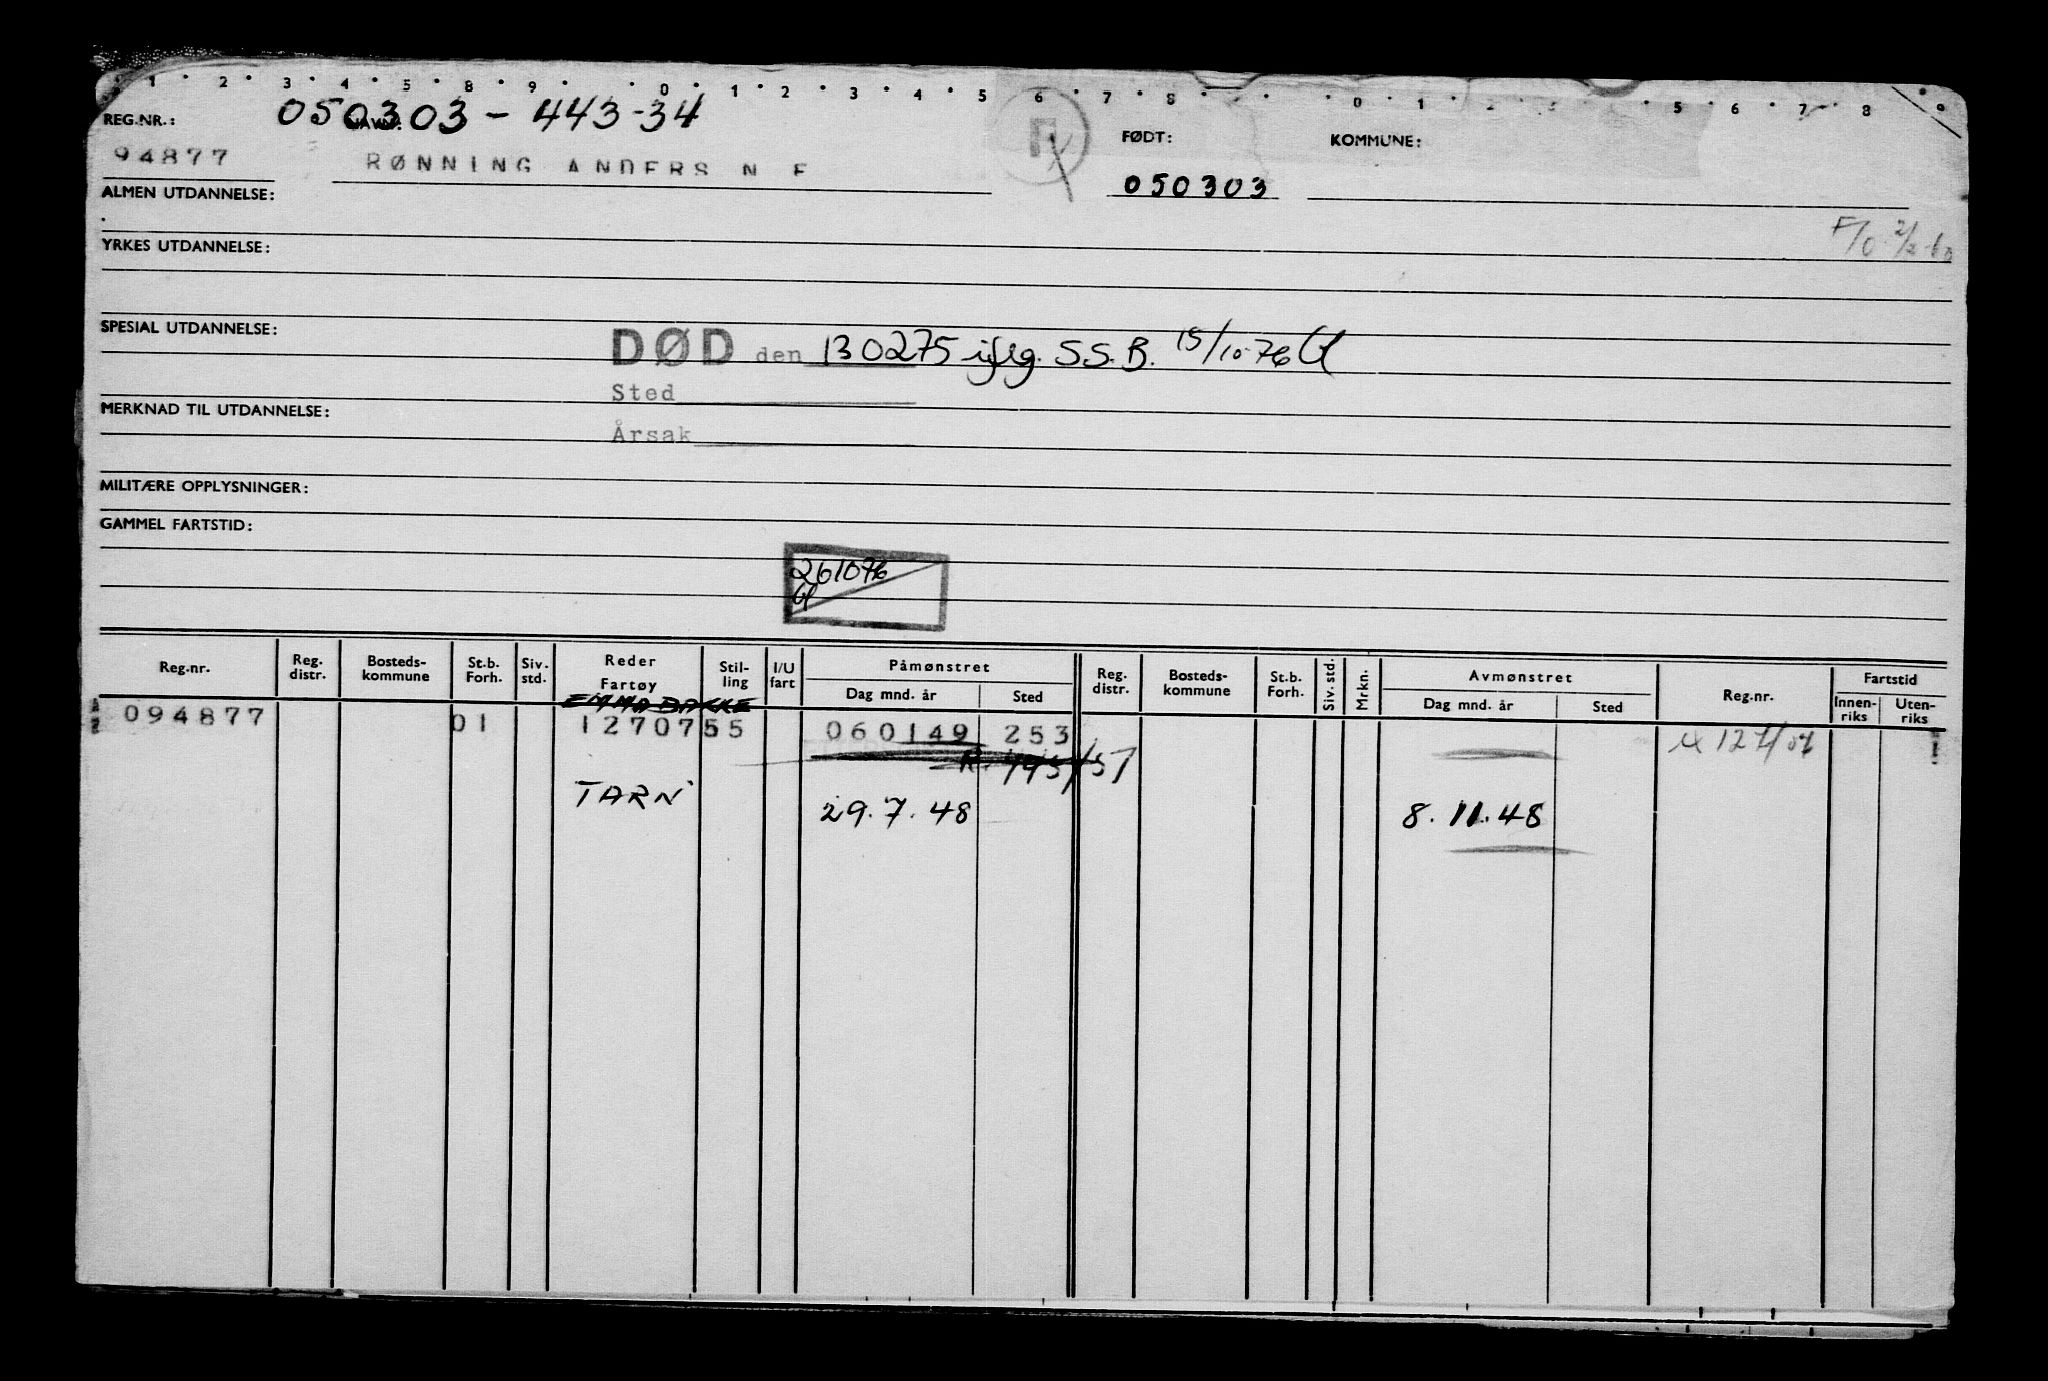 1 2 3 4 5 8 9 0 1 2 3 4 5 6 7 8 0 1 2 5 6 7 8 9
REG.NR.: 050303-443-34 FØDT: KOMMUNE:
94877 RØNNING ANDERS N F 050303
ALMEN UTDANNELSE:
F/0 2/2-60
YRKES UTDANNELSE:
SPESIAL UTDANNELSE:
DØD den 130275 iflg. S.S.B. 15/10-76
Sted
MERKNAD TIL UTDANNELSE:
Årsak
MILITÆRE OPPLYSNINGER:
GAMMEL FARTSTID:
261076
Reg.nr. Reg. distr. Bosteds- kommune St.b. Forh. Siv. std. Reder Fartøy Stil- ling I/U fart Påmønstret Dag mnd. år Sted Reg. distr. Bosteds- kommune St.b. Forh. Siv. std. Mrkn. Avmønstret Dag mnd. år Sted Reg.nr. Fartstid Innen- riks Uten- riks
EMMA BAKKE
094877 01 1270755 060149 253
TARN 29.7.48 8.11.48